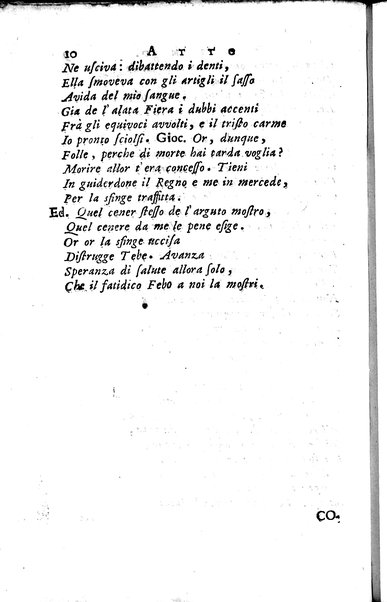 10 ATTO
Ne usciva: dibattendo i denti,
Ella smoveva con gli artigli il sasso
Avida del mio sangue.
Gia de l'alata Fiera i dubbi accenti
Frà gli equivoci avvolti, e il tristo carme
Io pronto sciolsi. Gioc. Or, dunque,
Folle, perche di morte hai tarda voglia?
Morire allor t'era concesso. Tieni
In guiderdone il Regno e me in mercede,
Per la sfinge traffitta.
Ed. Quel cener stesso de l'arguto mostro,
Quel cenere da me le pene esige.
Or or la sfinge uccisa
Distrugge Tebe. Avanza
Speranza di salute allora solo,
Che il fatidico Febo a noi la mostri.
CO-